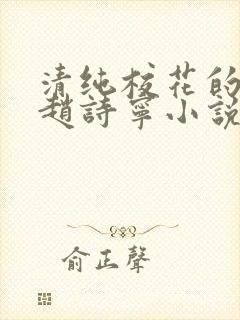 清纯校花的
趙詩寧小說
俞正聲